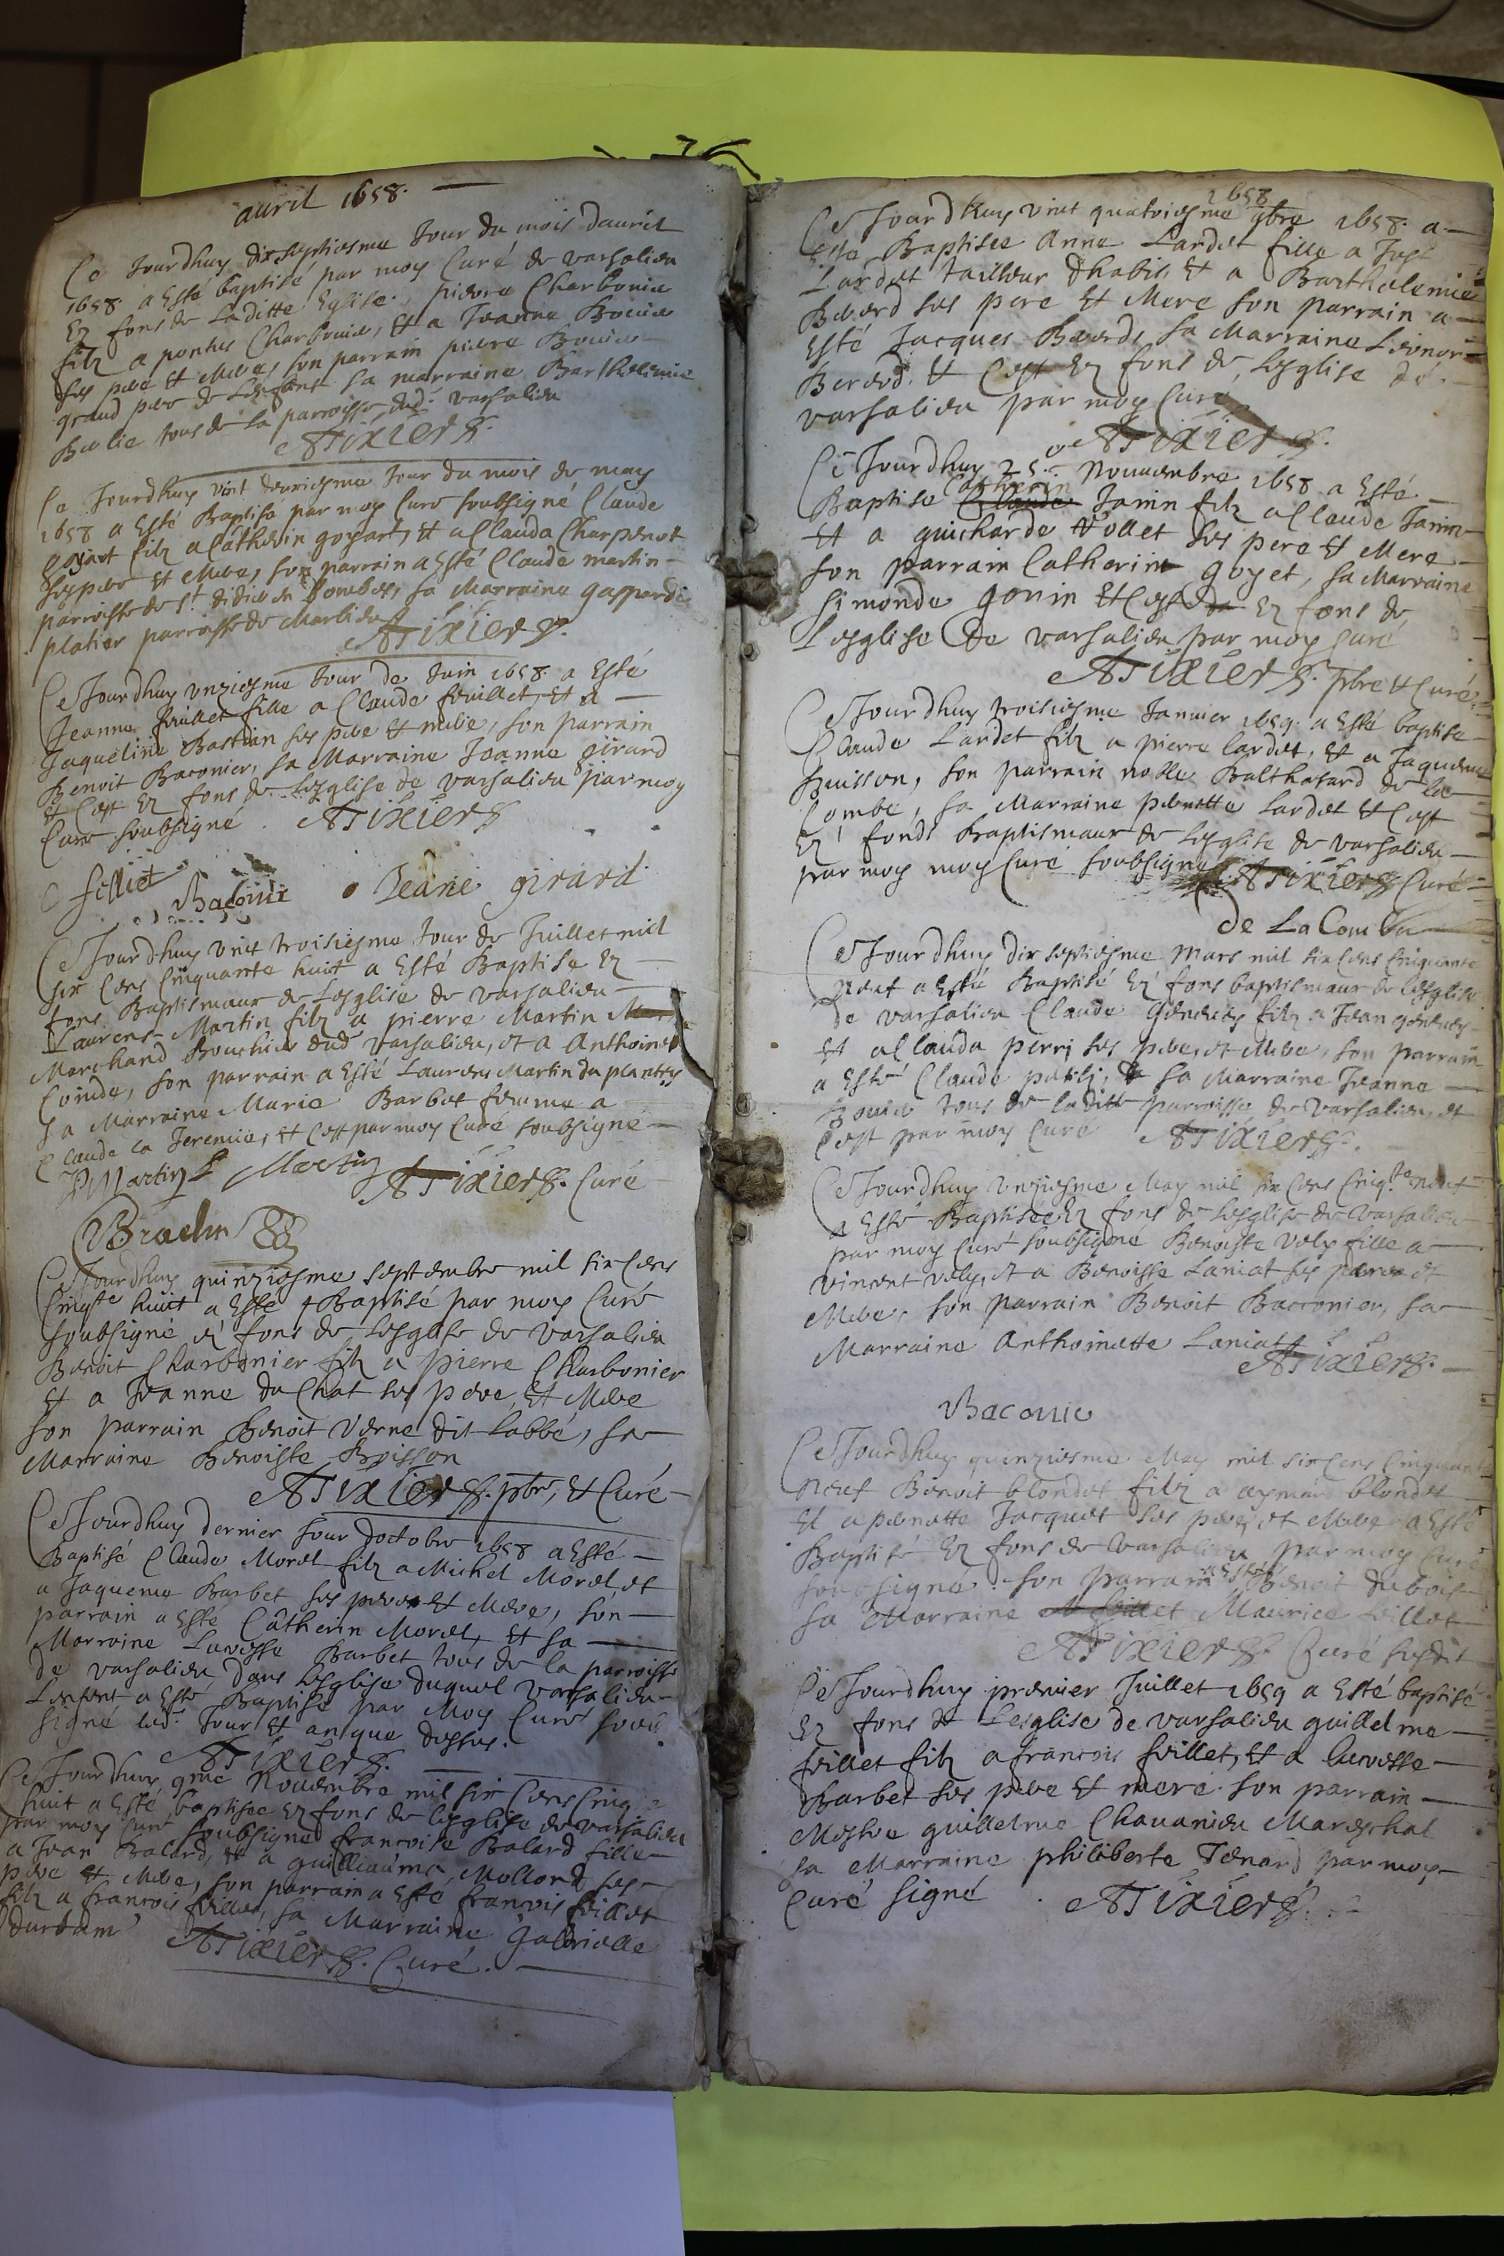 auril 1658.
Ce Jourdhuy dixseptiesme Jour du mois dauril
1658 a Esté baptisé par moy Curé de varsalieu
Ez fons de laditte Eglise pierre Charbonie
filz a ponthus Charbonie, Et a Jeanne Bouie
ses pere Et Mere, son parrain pierre Bouie
grand pere de Lenfant sa marraine Barthelemie
tous de la parroisse dud. varsalieu
ATixier
Ce Jourdhuy vint deuxiesme Jour du mois de may
1658 a Esté Baptise par moy Curé soubsigné Claude
goyart filz a Catherin goyart, Et a Clauda Charpenet
ses pere Et Mere, son parrain a Esté Claude martin
parroisse de St. didier de Dombes, sa Marraine gasparde
platier parroisse de Marlieu
ATixier
Ce Jourdhuy vnziesme Jour de Juin 1658. a Esté
Jeanne feuillet fille a Claude feuillet, Et a
Jaqueline Bastian ses pere Et mere, son parrain
Benoit Baconier, sa Marraine Jeanne girard
Et Cest Ez fons de Lesglise de varsalieu par moy
Curé soubsigné ATixier
felliet Baconie Jeane girard
Ce Jourdhuy vint troisiesme Jour de Juillet mil
six Cens Cinquante huit a Esté Baptise Ez
fons Baptismaux de Lesglise de varsalieu
Laurens Martin filz a pierre Martin
Marchand Bouchier dud varsalieu, et a Anthoine
son parrain a Esté Laurens Martin du plantey
sa Marraine Marie Barbet femme a
Claude la Jeremie, Et Cest par moy Curé soubsigné
PMartin Martin ATixier Curé
Ce Jourdhuy quinziesme septembre mil six Cens
Cinqte huit a Esté Baptisé par moy Curé
soubsigné ez fons de Lesglise de varsalieu
Benoit Charbonier filz a pierre Charbonier
Et a Jeanne du Chat ses pere, Et Mere
son parrain Benoit Verne dit Labbé, sa
Marraine Benoiste Boisson
ATixier pbre, Et Curé
Ce Jourdhuy dernier Jour doctobre 1658 a Esté
Baptisé Claude Morel filz a Michel Morel, et
a Jaquema Barbet ses pere Et Mere, son
parrain a Esté Catherin Morel, Et sa
Marraine Barbet tous de la parroisse
de varsalieu, dans Lesglise duquel varsalieu
Lenfant a Esté Baptisé par Moy Curé soub
signé led. Jour Et an que dessus.
ATixier
Ce Jourdhuy Nouembre mil six Cens Cinq
huit a Esté baptisee Ez fons de Lesglise de varsalieu
par moy Curé soubsigné francoise Balard fille
a Jean Balard, Et a guilliauma Mollard, ses
pere Et Mere, son parrain a Esté francois feillet
filz a francois feillet, sa Marraine Gabrielle
ATixier Curé.
1658
Ce Jourdhuy vint quatriesme 9bre 1658. a
Este Baptisee Anne Lardet fille a Just
Lardet tailleur dhabis Et a Barthelemie
Bererd ses pere Et Mere son parrain a
Esté Jacques Sa Marraine Lienor
Bererd. Et Cest Ez fons de Lesglise de
varsalieu par moy Curé
ATixier
Ce Jourdhuy 25. Nouuembre 1658 a Esté
Baptise Catherin Claude Janin filz a Claude Janin
Et a guicharde Vollet ses pere Et Mere
son parrain Catherin Goyet, sa Marraine
simonde Gonin Et Cest Ez fons de
Lesglise de varsalieu par moy Curé
ATixier pbre Et Curé
Ce Jourdhuy troisiesme Januier 1659. a Esté baptise
Claude Lardet filz a pierre lardet, Et a Jaquema
buisson, son parrain noble Balthasard de la
Combe, sa Marraine pernette Lardet Et Cest
Ez fonds Baptismaux de Lesglise de varsalieu
par moy moy Curé soubsigné ATixier Curé
de La Combe
Ce Jourdhuy dix septiesme Mars mil six Cens Cinquante
neuf a Esté Baptisé Ez fons baptismaux de Lesglise
de varsalieu Claude Geneueys filz a Jean geneueys
Et a Clauda perri ses pere, et Mere, son parrain
a Esté Claude sa Marraine Jeanne
Bouie tous de laditte parroisse de varsalieu, et
Cest par moy Curé ATixier
Ce Jourdhuy vnziesme May mil six Cens Cinq.te neuf
a Esté Baptisée Ez fons de Lesglise de varsalieu
par moy Curé soubsigné Benoiste Vely fille a
vincent vely, et a Benoiste Laniat ses pere et
Mere, son parrain Benoit Baconier, sa
Marraine Anthoinette Laniat
ATixier
Baconie
Ce Jourdhuy quinziesme May mil six Cens Cinquante
neuf Benoit blondet filz a aymard blondet
Et a pernette Jacquet ses pere, et Mere a Esté
Baptisé Ez fons de varsalieu par moy Curé
soubsigné son parrain a Esté Benoit dubois
sa Marraine Maurice feillet
ATixier Curé susdit
Ce Jourdhuy premier Juillet 1659 a Esté baptisé
Ez fons de Lesglise de varsalieu guillelme
feillet filz a francois feillet, Et a
Barbet ses pere Et mere. son parrain
Mestre guillelme Chauanieu Mareschal
sa Marraine philiberte Tenard par moy
Curé signé ATixier